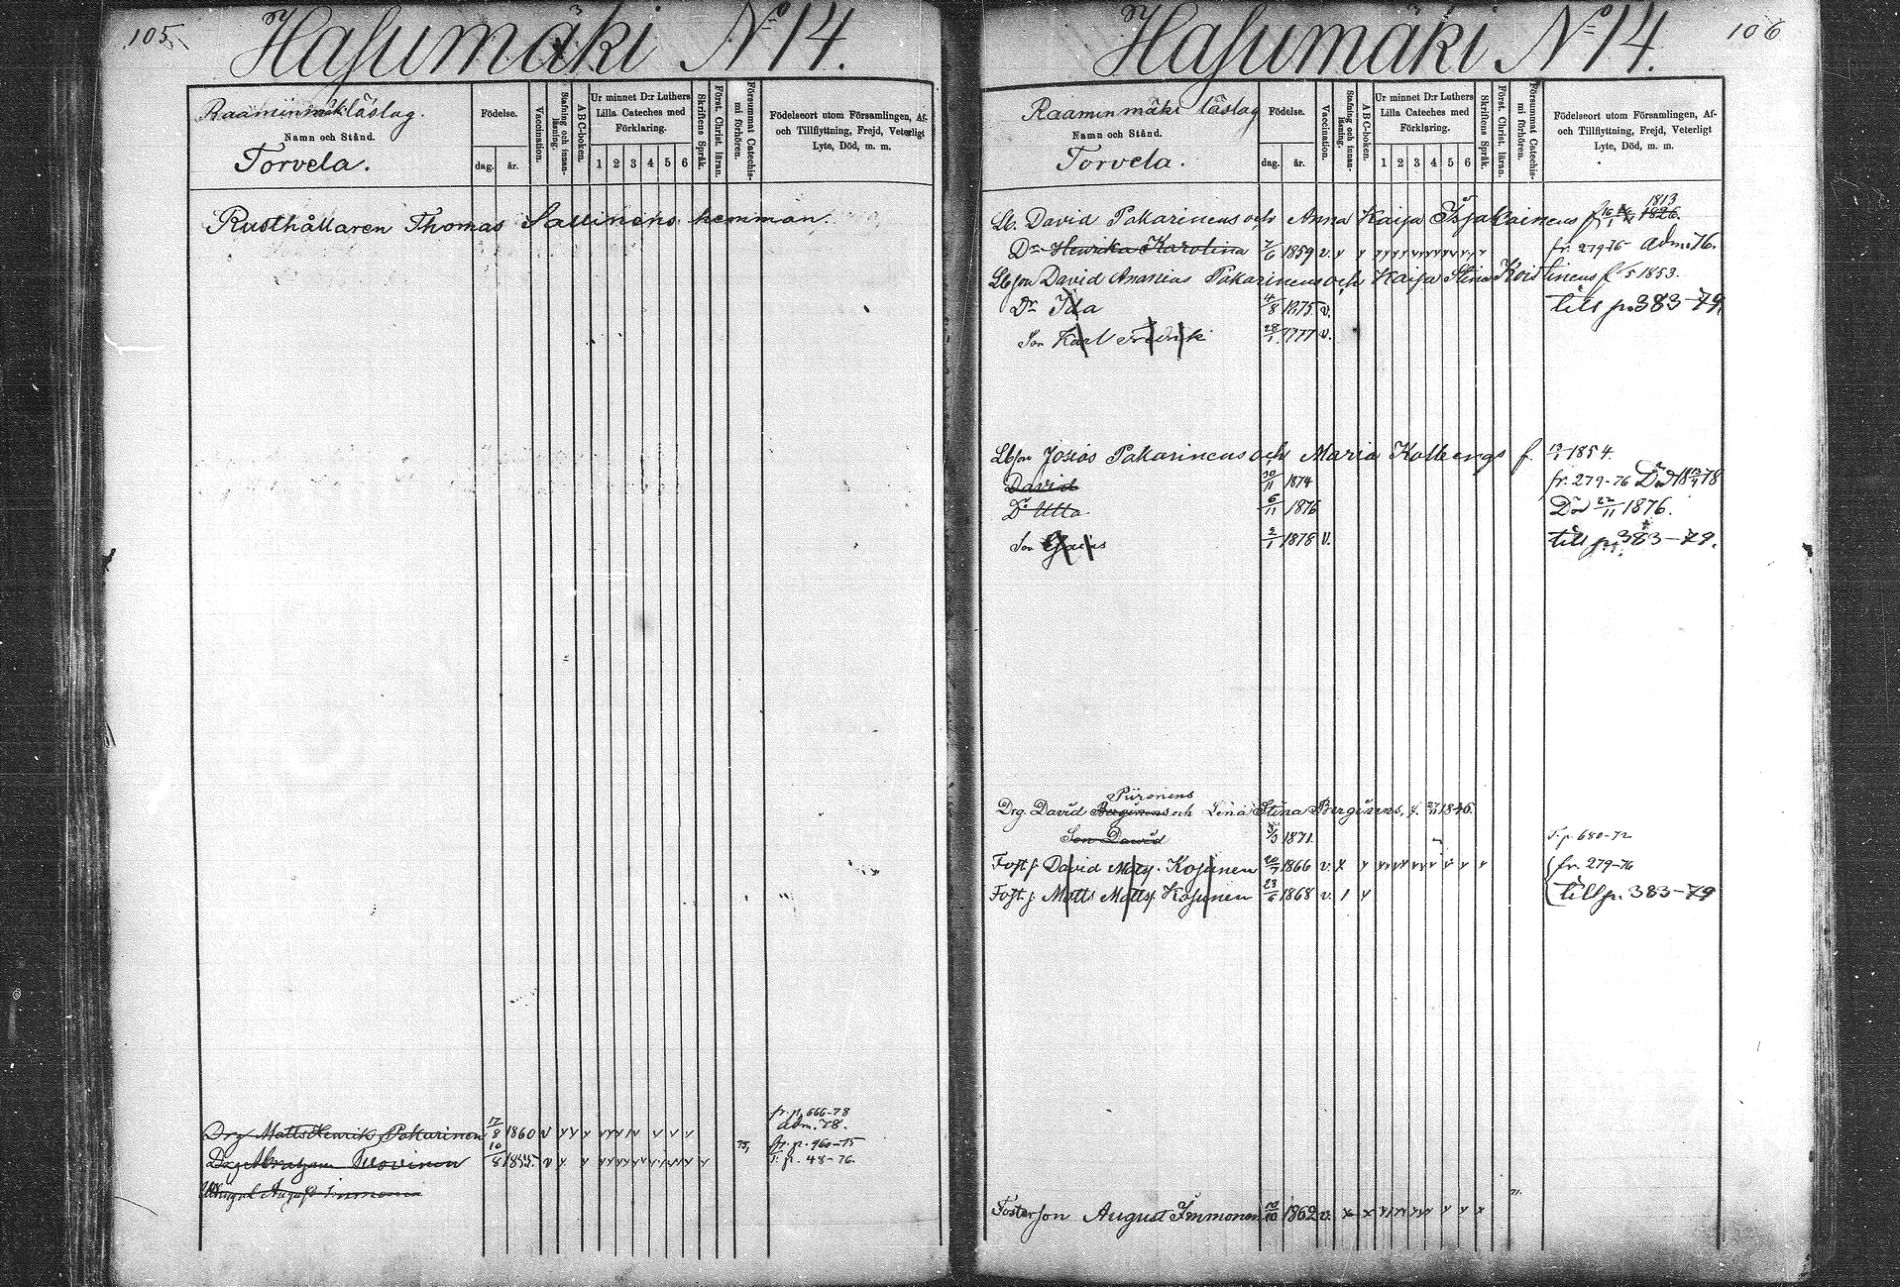 105
Hasumäki No 14.
Raaminmäki läslag.
Namn och Stånd.
Torvela.
Födelse.
dag.
år.
Vaccination.
Stafning och innan-
läsning.
A B C-boken.
Ur minnet D:r Luthers
Lilla Cateches med
Förklaring.
1 2 3 4 5 6
Skriftens Språk.
Först. Christ. läran.
Försummat Catechis-
mi förhören.
Födelseort utom Församlingen, Af-
och Tillflyttning, Frejd, Veterligt
Lyte, Död, m. m.
Rusthållaren Thomas Sallinens hemman.
fr. p. 666-78
Drg Matts Henrik Pakarinen 17/8 1860 v adm. 78.
75, fr. p. 960-75
Drg Abraham 10/8 v T. p. 48-76.
August Immonen
106
Hasumäki No 14.
Raaminmäki läslag
Namn och Stånd.
Torvela.
Födelse.
dag.
år.
Vaccination.
Stafning och innan-
läsning.
A B C-boken.
Ur minnet D:r Luthers
Lilla Cateches med
Förklaring.
1 2 3 4 5 6
Skriftens Språk.
Först. Christ. läran.
Försummat Catechis-
mi förhören.
Födelseort utom Församlingen, Af-
och Tillflyttning, Frejd, Veterligt
Lyte, Död, m. m.
1813
Lb. David Pakarinens och Anna Kaija f. 1826.
Dr Henrika Karolina 7/6 1859 v. fr. 279-76 adm. 76.
Lbson David Ananias Pakarinens och Kaija Stina Koistinens f. 1853.
Dr Ida 4/8 1875 v. till p. 383-79.
Son Karl Fredrik 28/1 1877 v.
Lbson Josias Pakarinens och Maria Kolbergs f. 1854.
David 30/11 1874 fr. 279-76 Död 78
Dr Ulla 6/11 1876 Död 22/11 1876.
Son 2/1 1878 v. till p. 383-79.
Piironens
Drg. David och Lena Stina f. 1846.
Son David 1871. T. p. 680-72
Fost. s. David Matts. Kosunen 20/7 1866 v. fr. 279-76
Fost. s. Matts Matts. Kosunen 23/6 1868 v. till p. 383-79
71.
Fosterson August Immonen 10/10 1862 v.